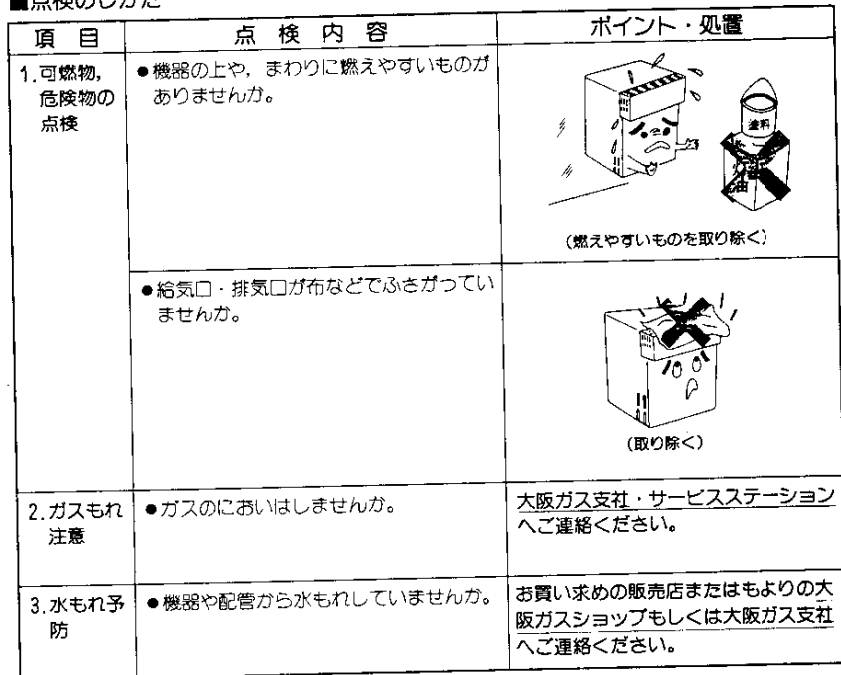 ■点検のしかた
項目
点検内容
ポイント・処置
1.可燃物,
危険物の
点検
●機器の上や,まわりに燃えやすいものが
ありませんか。
塗料
油
(燃えやすいものを取り除く)
●給気口・排気口が布などでふさがってい
ませんか。
(取り除く)
2.ガスもれ
注意
●ガスのにおいはしませんか。
大阪ガス支社・サービスステーション
へご連絡ください。
3.水もれ予
防
●機器や配管から水もれしていませんか。
お買い求めの販売店またはもよりの大
阪ガスショップもしくは大阪ガス支社
へご連絡ください。